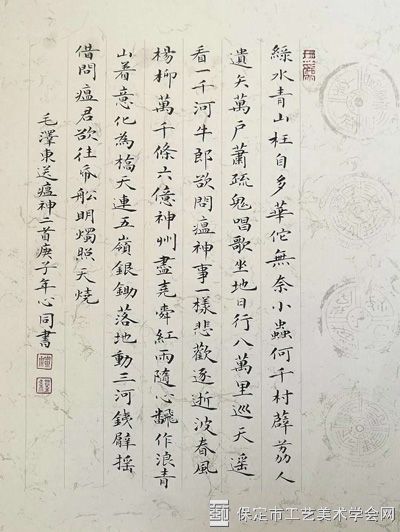 綠水青山枉自多華佗無奈小蟲何千村薜荔人
遺矢萬戶蕭疏鬼唱歌坐地日行八萬里巡天遙
看一千河牛郎欲問瘟神事一樣悲歡逐逝波春風
楊柳萬千條六億神州盡堯舜紅雨隨心飜作浪青
山着意化為橋天連五嶺銀鋤落地動三河鐵臂搖
借問瘟君欲往帋船明燭照天燒
毛澤東送瘟神二首庚子年心同書
保定市工艺美术学会网